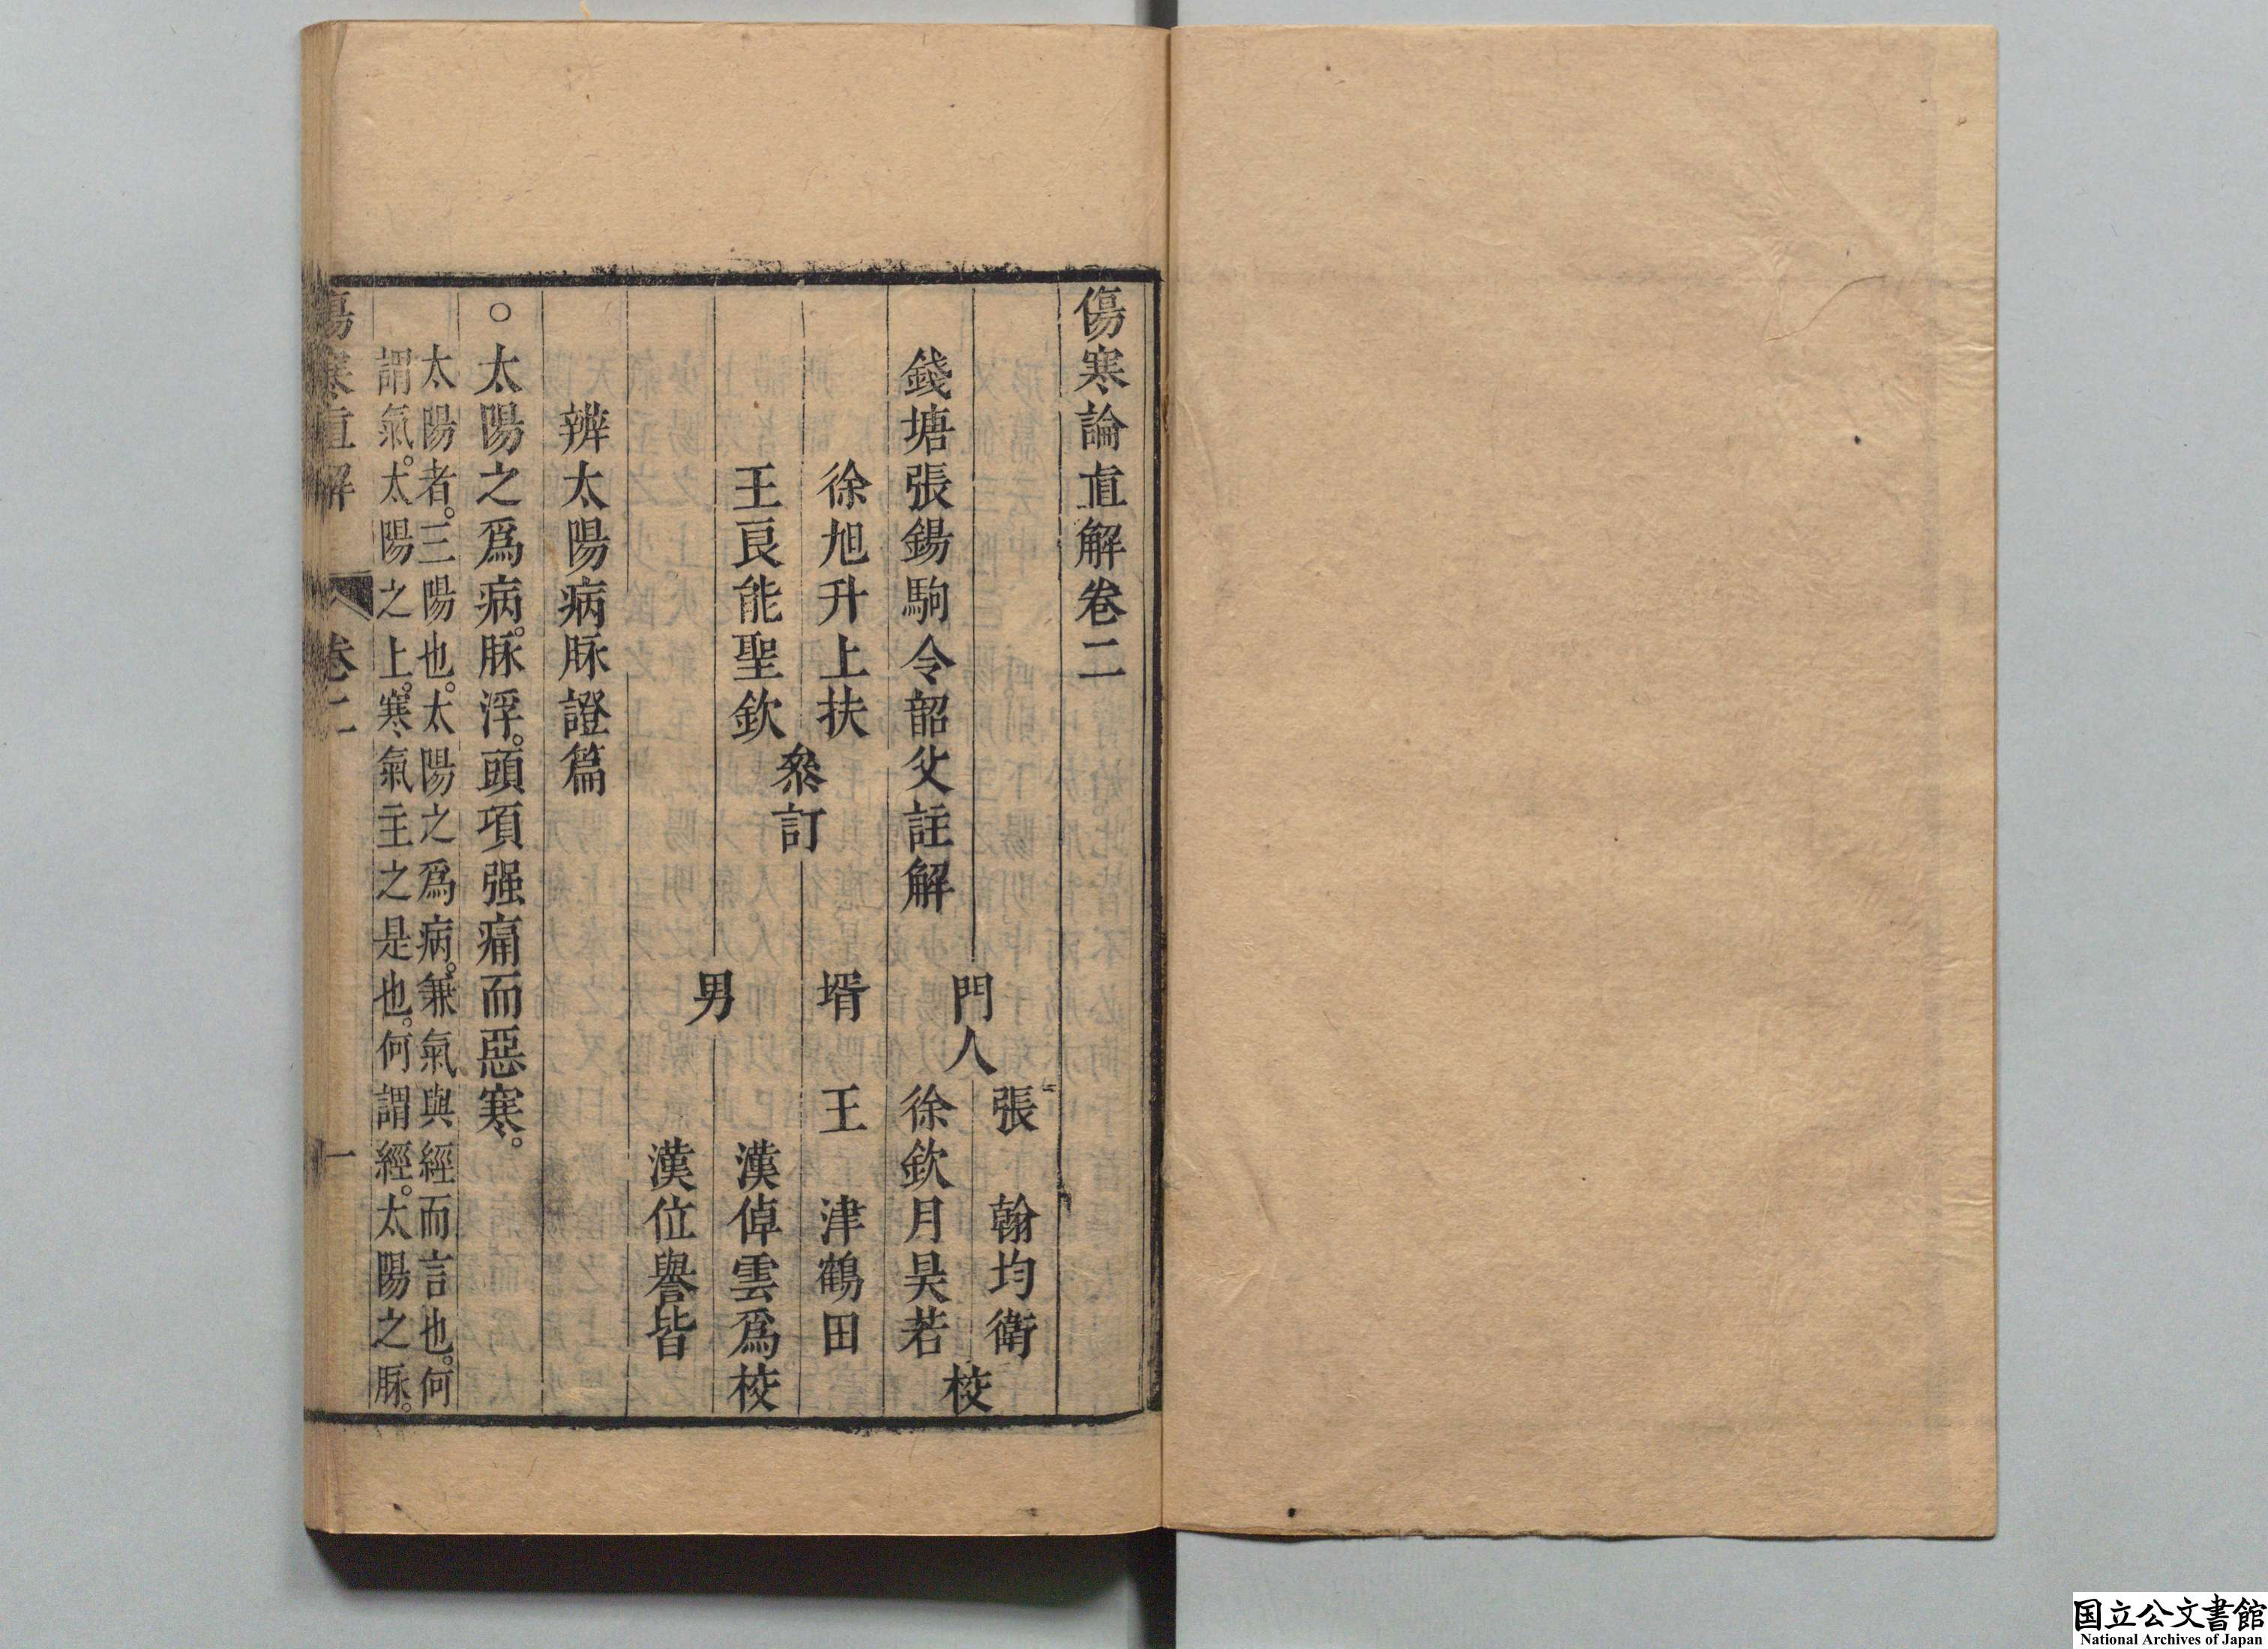 傷寒論直解卷二
錢塘張錫駒令韶父註解
徐旭升上扶
王良能聖欽
叅訂
門人
張 翰均衛
徐欽月昊若
校
壻 王 津鶴田
男
漢倬雲爲
漢位譽皆
校
辨太陽病脉證篇
○太陽之爲病。脉浮。頭項强痛而惡寒。
太陽者。三陽也。太陽之爲病。兼氣與經而言也。何
謂氣。太陽之上。寒氣主之是也。何謂經。太陽之脉。
傷寒直解 卷二 一
国立公文書館
National Archives of Japan